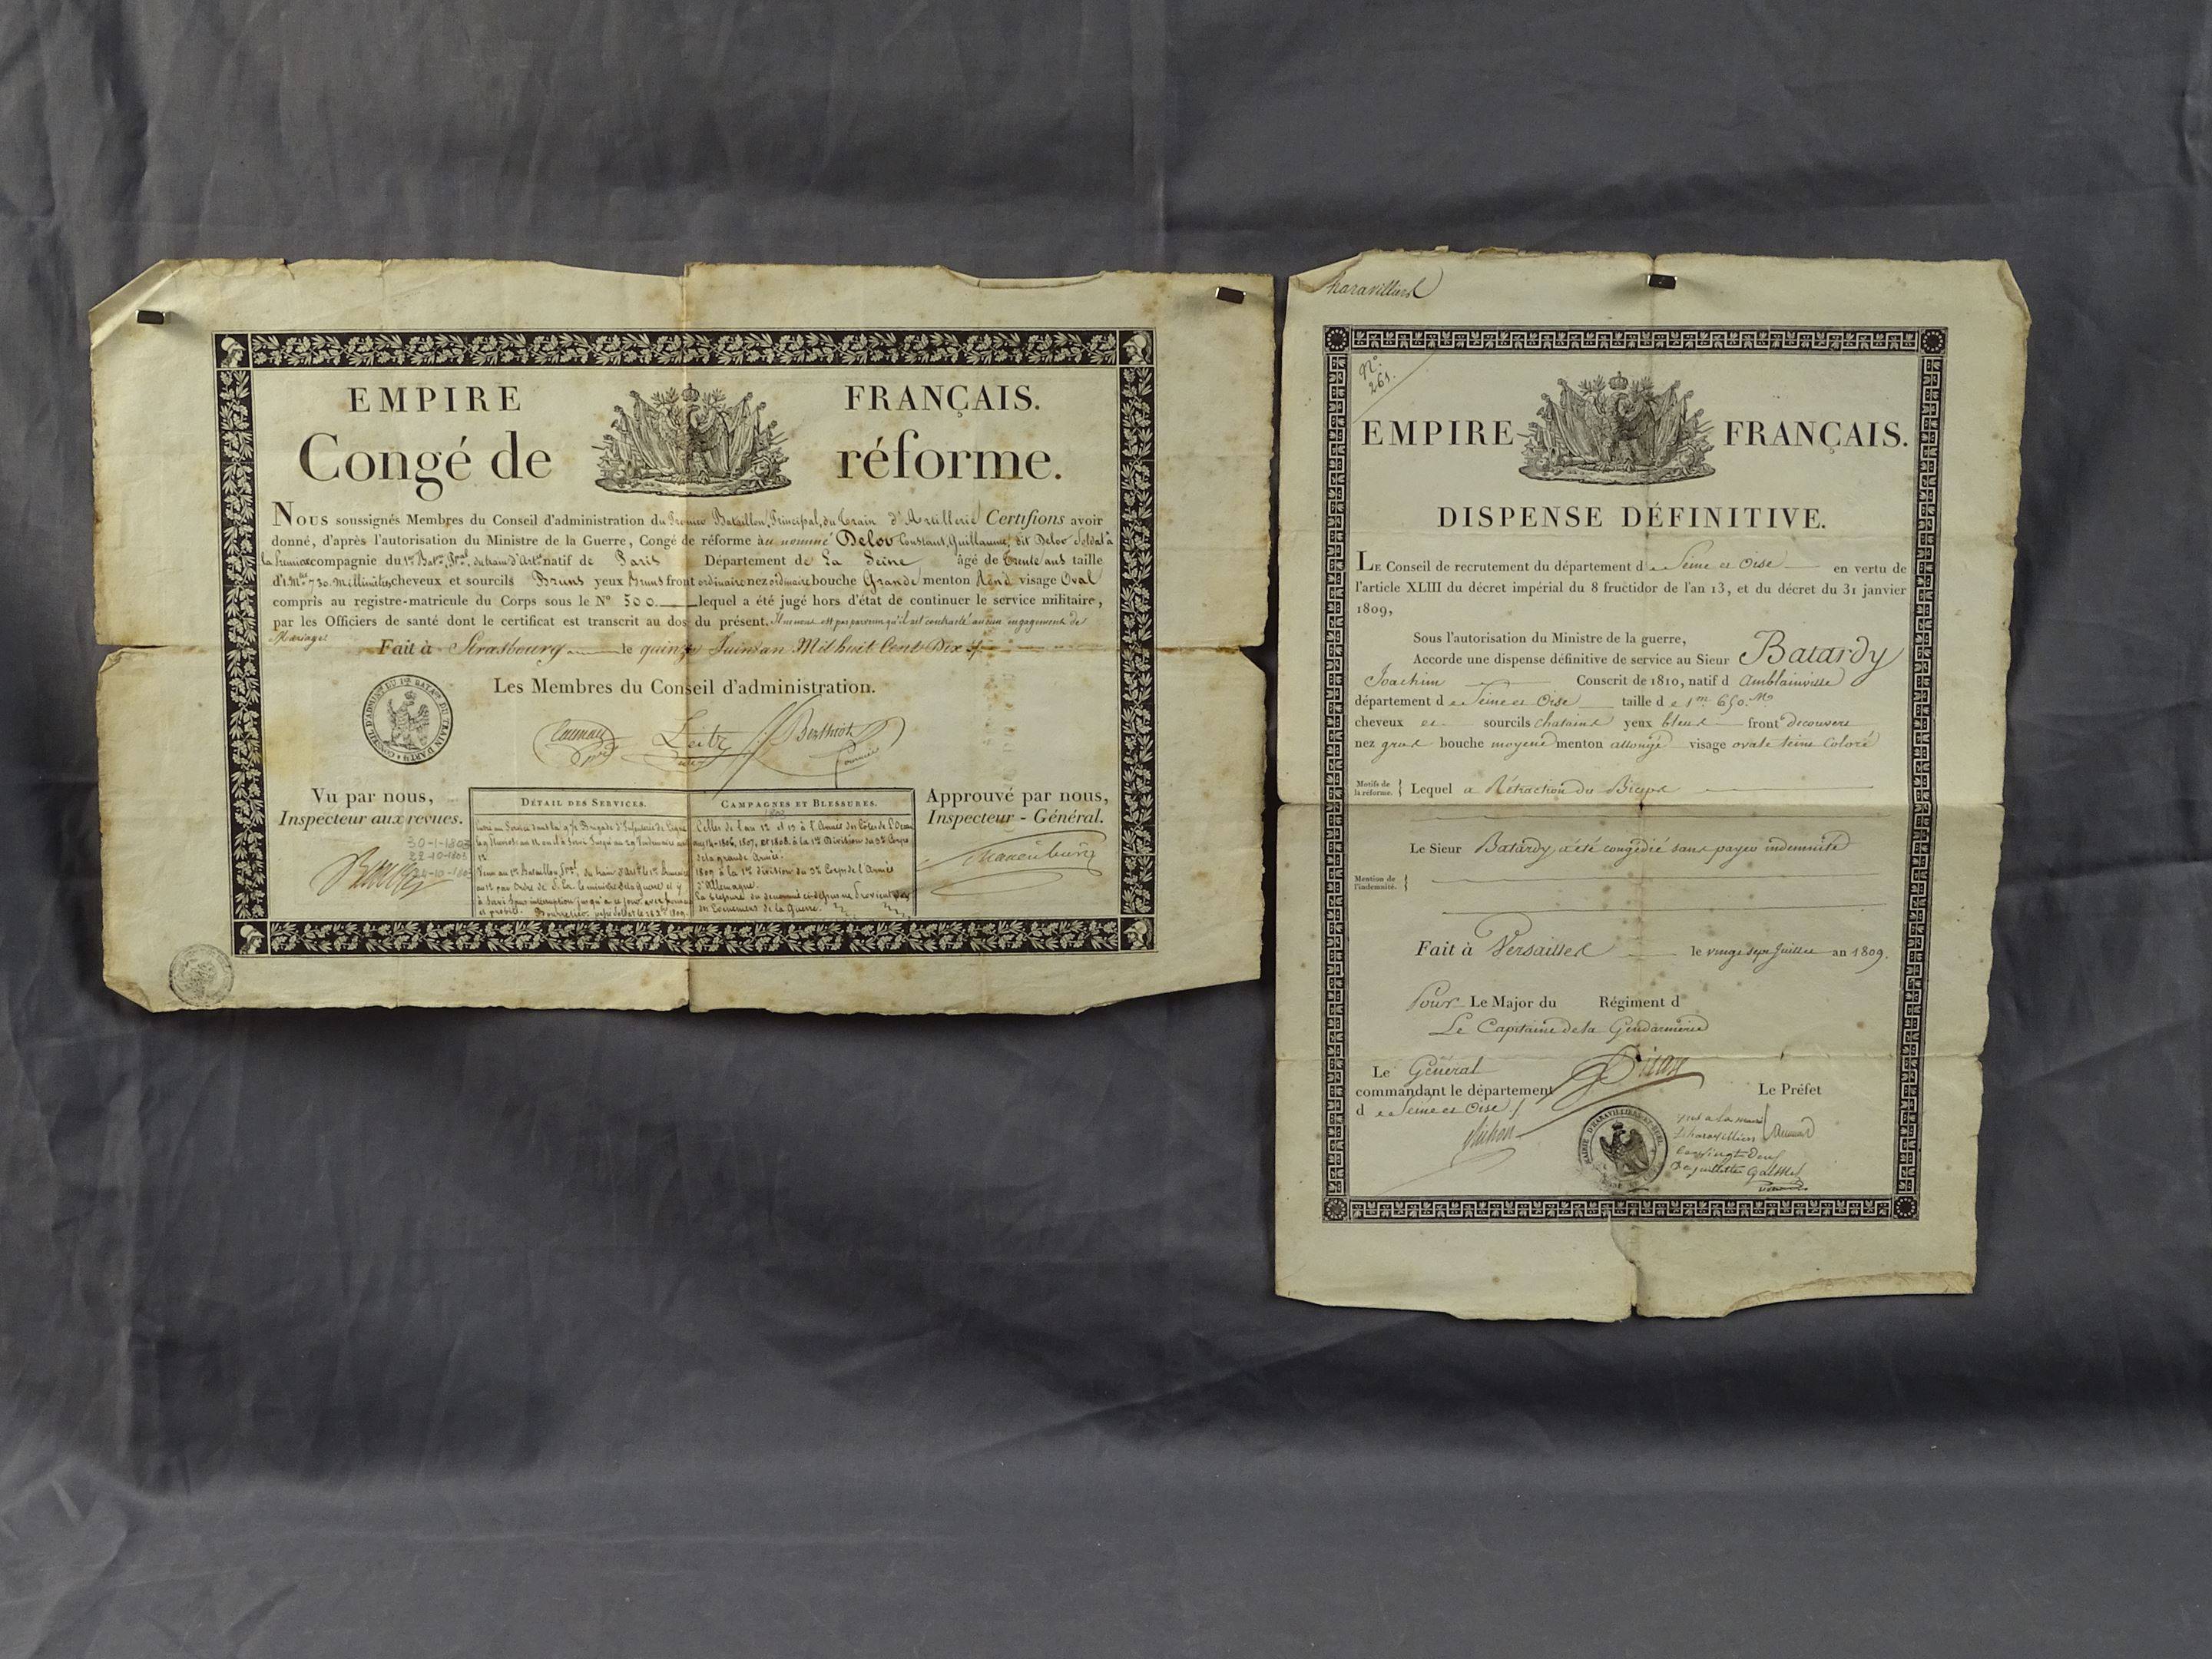 EMPIRE FRANÇAIS.
Congé de réforme.
NOUS soussignés Membres du Conseil d'administration du Premier Bataillon Principal, du train d'Artillerie Certifions avoir
donné, d'après l'autorisation du Ministre de la Guerre, Congé de réforme au nommé Delov Constant, Guillaume, dit Delov Soldat à
la Premiere compagnie du 1er Baton Pral du train d'Artie natif de Paris Département de La Seine âgé de trente ans taille
d'1 Mtre 730. Millimètres cheveux et sourcils Bruns yeux Bruns front ordinaire nez ordinaire bouche Grande menton Rond visage Oval
compris au registre-matricule du Corps sous le N° 500. lequel a été jugé hors d'état de continuer le service militaire,
par les Officiers de santé dont le certificat est transcrit au dos du présent. Il ne nous est pas parvenu qu'il ait contracté aucun engagement de
Mariage
Fait à Strasbourg le quinze Juin an Mil huit Cent Dix
Les Membres du Conseil d'administration.
CONSEIL D'ADMINT DU 1er BATAON DU TRAIN D'ARTIE
Leitz
Berthiot
Vu par nous,
Inspecteur aux revues.
30-1-1803
22-10-1803
24-10-1803
DÉTAIL DES SERVICES.
Entré au Service dans la Brigade d'Infanterie de Ligne
le 9 Pluviose an 11 ou il à Servi Jusqu'au 29 Vendemiaire an
12
Venu au 1er Bataillon Pral du train d'Artie le 1er Brumaire
an 12 par Ordre de S. Ex. le ministre de la guerre et y
à Servi Sans interruption jusqu'à ce jour avec honneur
et probité.
CAMPAGNES ET BLESSURES.
Celles de l'an 12 et 13 à l'Armée des Côtes de l'Ocean
an 14-1806, 1807, et 1808. à la 1re Division du 3e Corps
de la grande Armée.
1809 à la 1re division du 3e Corps de l'Armée
d'Allemagne.
La blessure du denommé ci-dessus ne Provient pas
des Evenemens de la Guerre.
Approuvé par nous,
Inspecteur-Général.
N° 261.
EMPIRE FRANÇAIS.
DISPENSE DÉFINITIVE.
LE Conseil de recrutement du département de Seine et Oise en vertu de
l'article XLIII du décret impérial du 8 fructidor de l'an 13, et du décret du 31 janvier
1809,
Sous l'autorisation du Ministre de la guerre,
Accorde une dispense définitive de service au Sieur Batardy
Joachim Conscrit de 1810, natif d Amblainville
département de Seine et Oise taille de 1m 650. Mo
cheveux et sourcils chatains yeux bleus front decouvert
nez gros bouche moyene menton allongé visage ovale teint Coloré
Motifs de la réforme. Lequel a Rétraction du Biceps
Le Sieur Batardy a été congédié sans payer indemnité
Mention de l'indemnité.
Fait à Versailles le vingt sept Juillet an 1809.
Pour Le Major du Régiment d
Le Capitaine de la Gendarmerie
Le Général
commandant le département
de Seine et Oise
Le Préfet
MAIRIE D'HARAVILLIERS